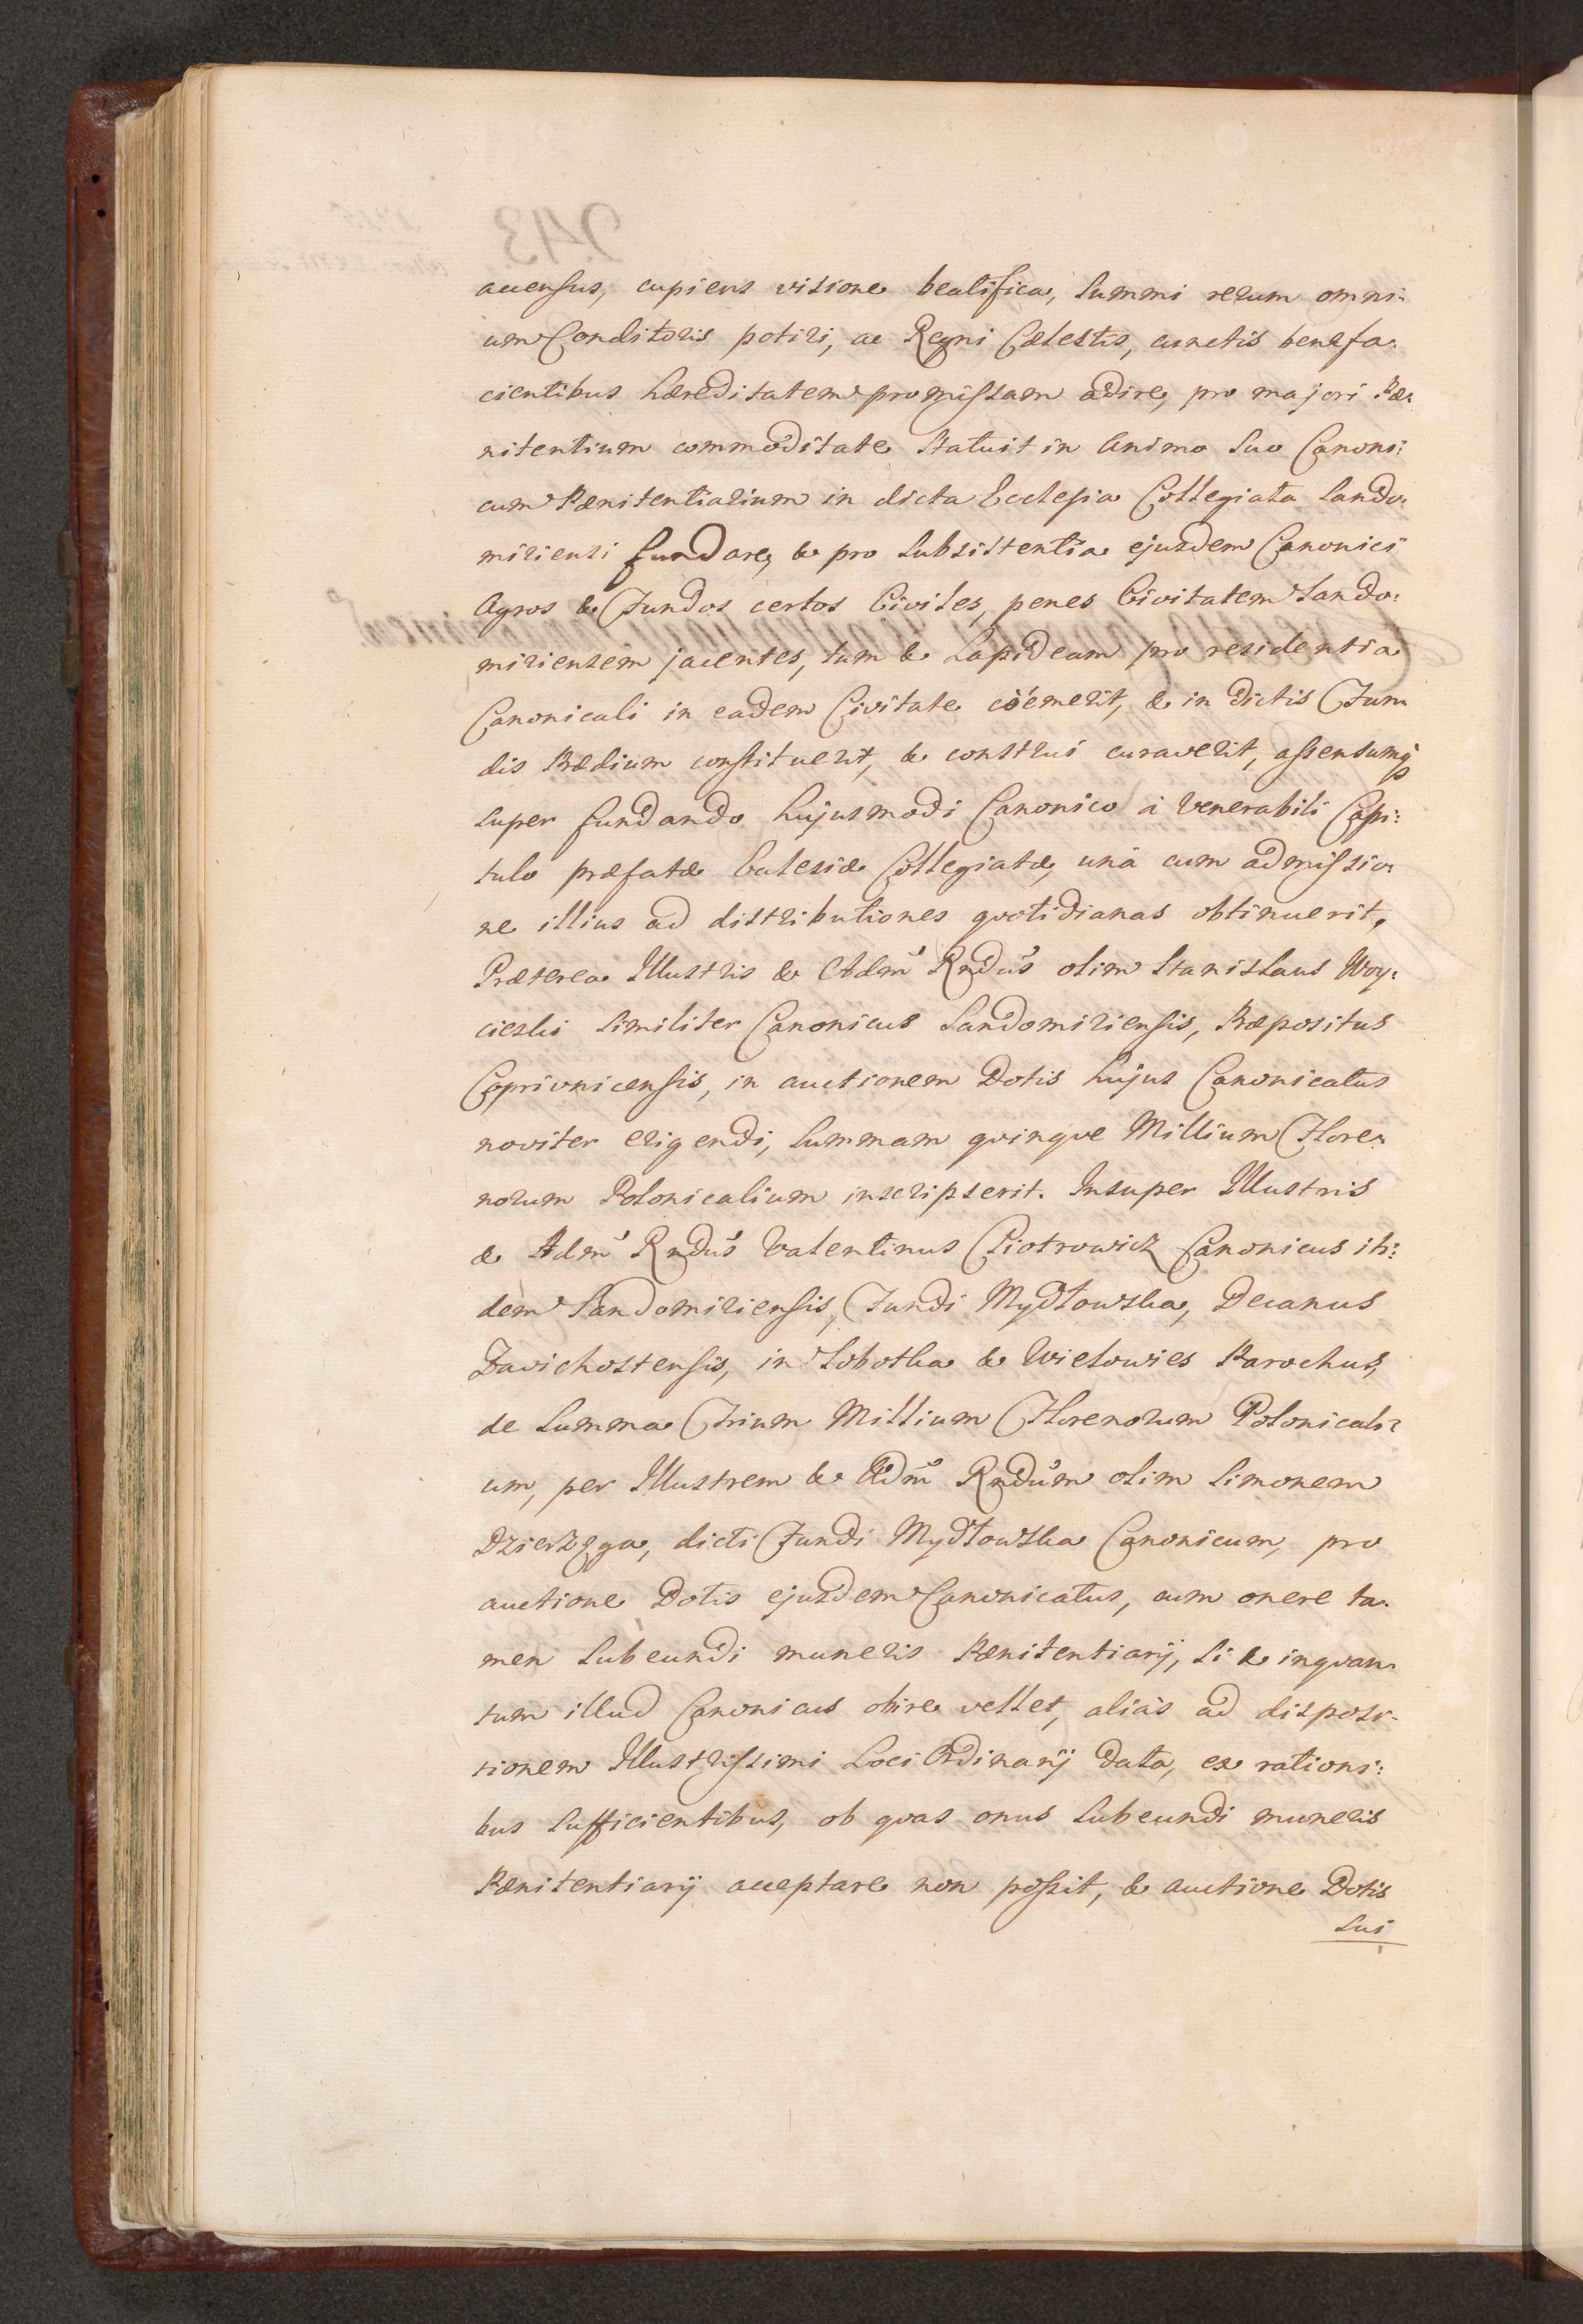 accensus, cupiens visione beatifica, summi rerum omni:
um Conditoris potiri, ac Regni Cælestis, cunctis benefa:
cientibus hæreditatem promissam adire, pro majori Pæ:
nitentium commoditate statuit in Animo suo Canoni:
cum Pænitentiarium in dicta Ecclesia Collegiata Sando:
miriensi fundare, & pro subsistentia ejusdem Canonici
Agros & Fundos certos Civiles, penes Civitatem Sando:
miriensem jacentes, tum & Lapideam pro residentia
Canonicali in eadem Civitate coëmerit, & in dictis Fun
dis Prædium constituerit, & construi curaverit, assensumq́
super fundando hujusmodi Canonico à Venerabili Capi:
tulo præfatæ Ecclesiæ Collegiatæ, unà cum admissio:
ne illius ad distributiones quotidianas obtinuerit,
Præterea Illustris & Adm̃ Rndus̃ olim Stanislaus Woy:
cieski similiter Canonicus Sandomiriensis, Præpositus
Coprivnicensis, in auctionem Dotis hujus Canonicatus
noviter erigendi, summam quinque Millium Flore:
norum Polonicalium inscripserit. Insuper Illustris
& Adm̃ Rndus̃ Valentinus Piotrowicz Canonicus iti:
dem Sandomiriensis, Fundi Mydłowska, Decanus
Zavichostensis, in Sobotka & Wielowies Parochus,
de summa Trium Millium Florenorum Polonicali:
um, per Illustrem & Adm̃ Rndum̃ olim Simonem
Dzierzęga, dicti Fundi Mydłowska Canonicum, pro
auctione Dotis ejusdem Canonicatus, cum onere ta:
men subeundi muneris Pænitentiarij, si & inquan:
tum illud Canonicus obire vellet, aliàs ad disposi:
tionem Illustrissimi Loci Ordinarij data, ex rationi:
bus sufficientibus, ob quas onus subeundi muneris
Pænitentiarij acceptare non possit, & auctione Dotis
sui